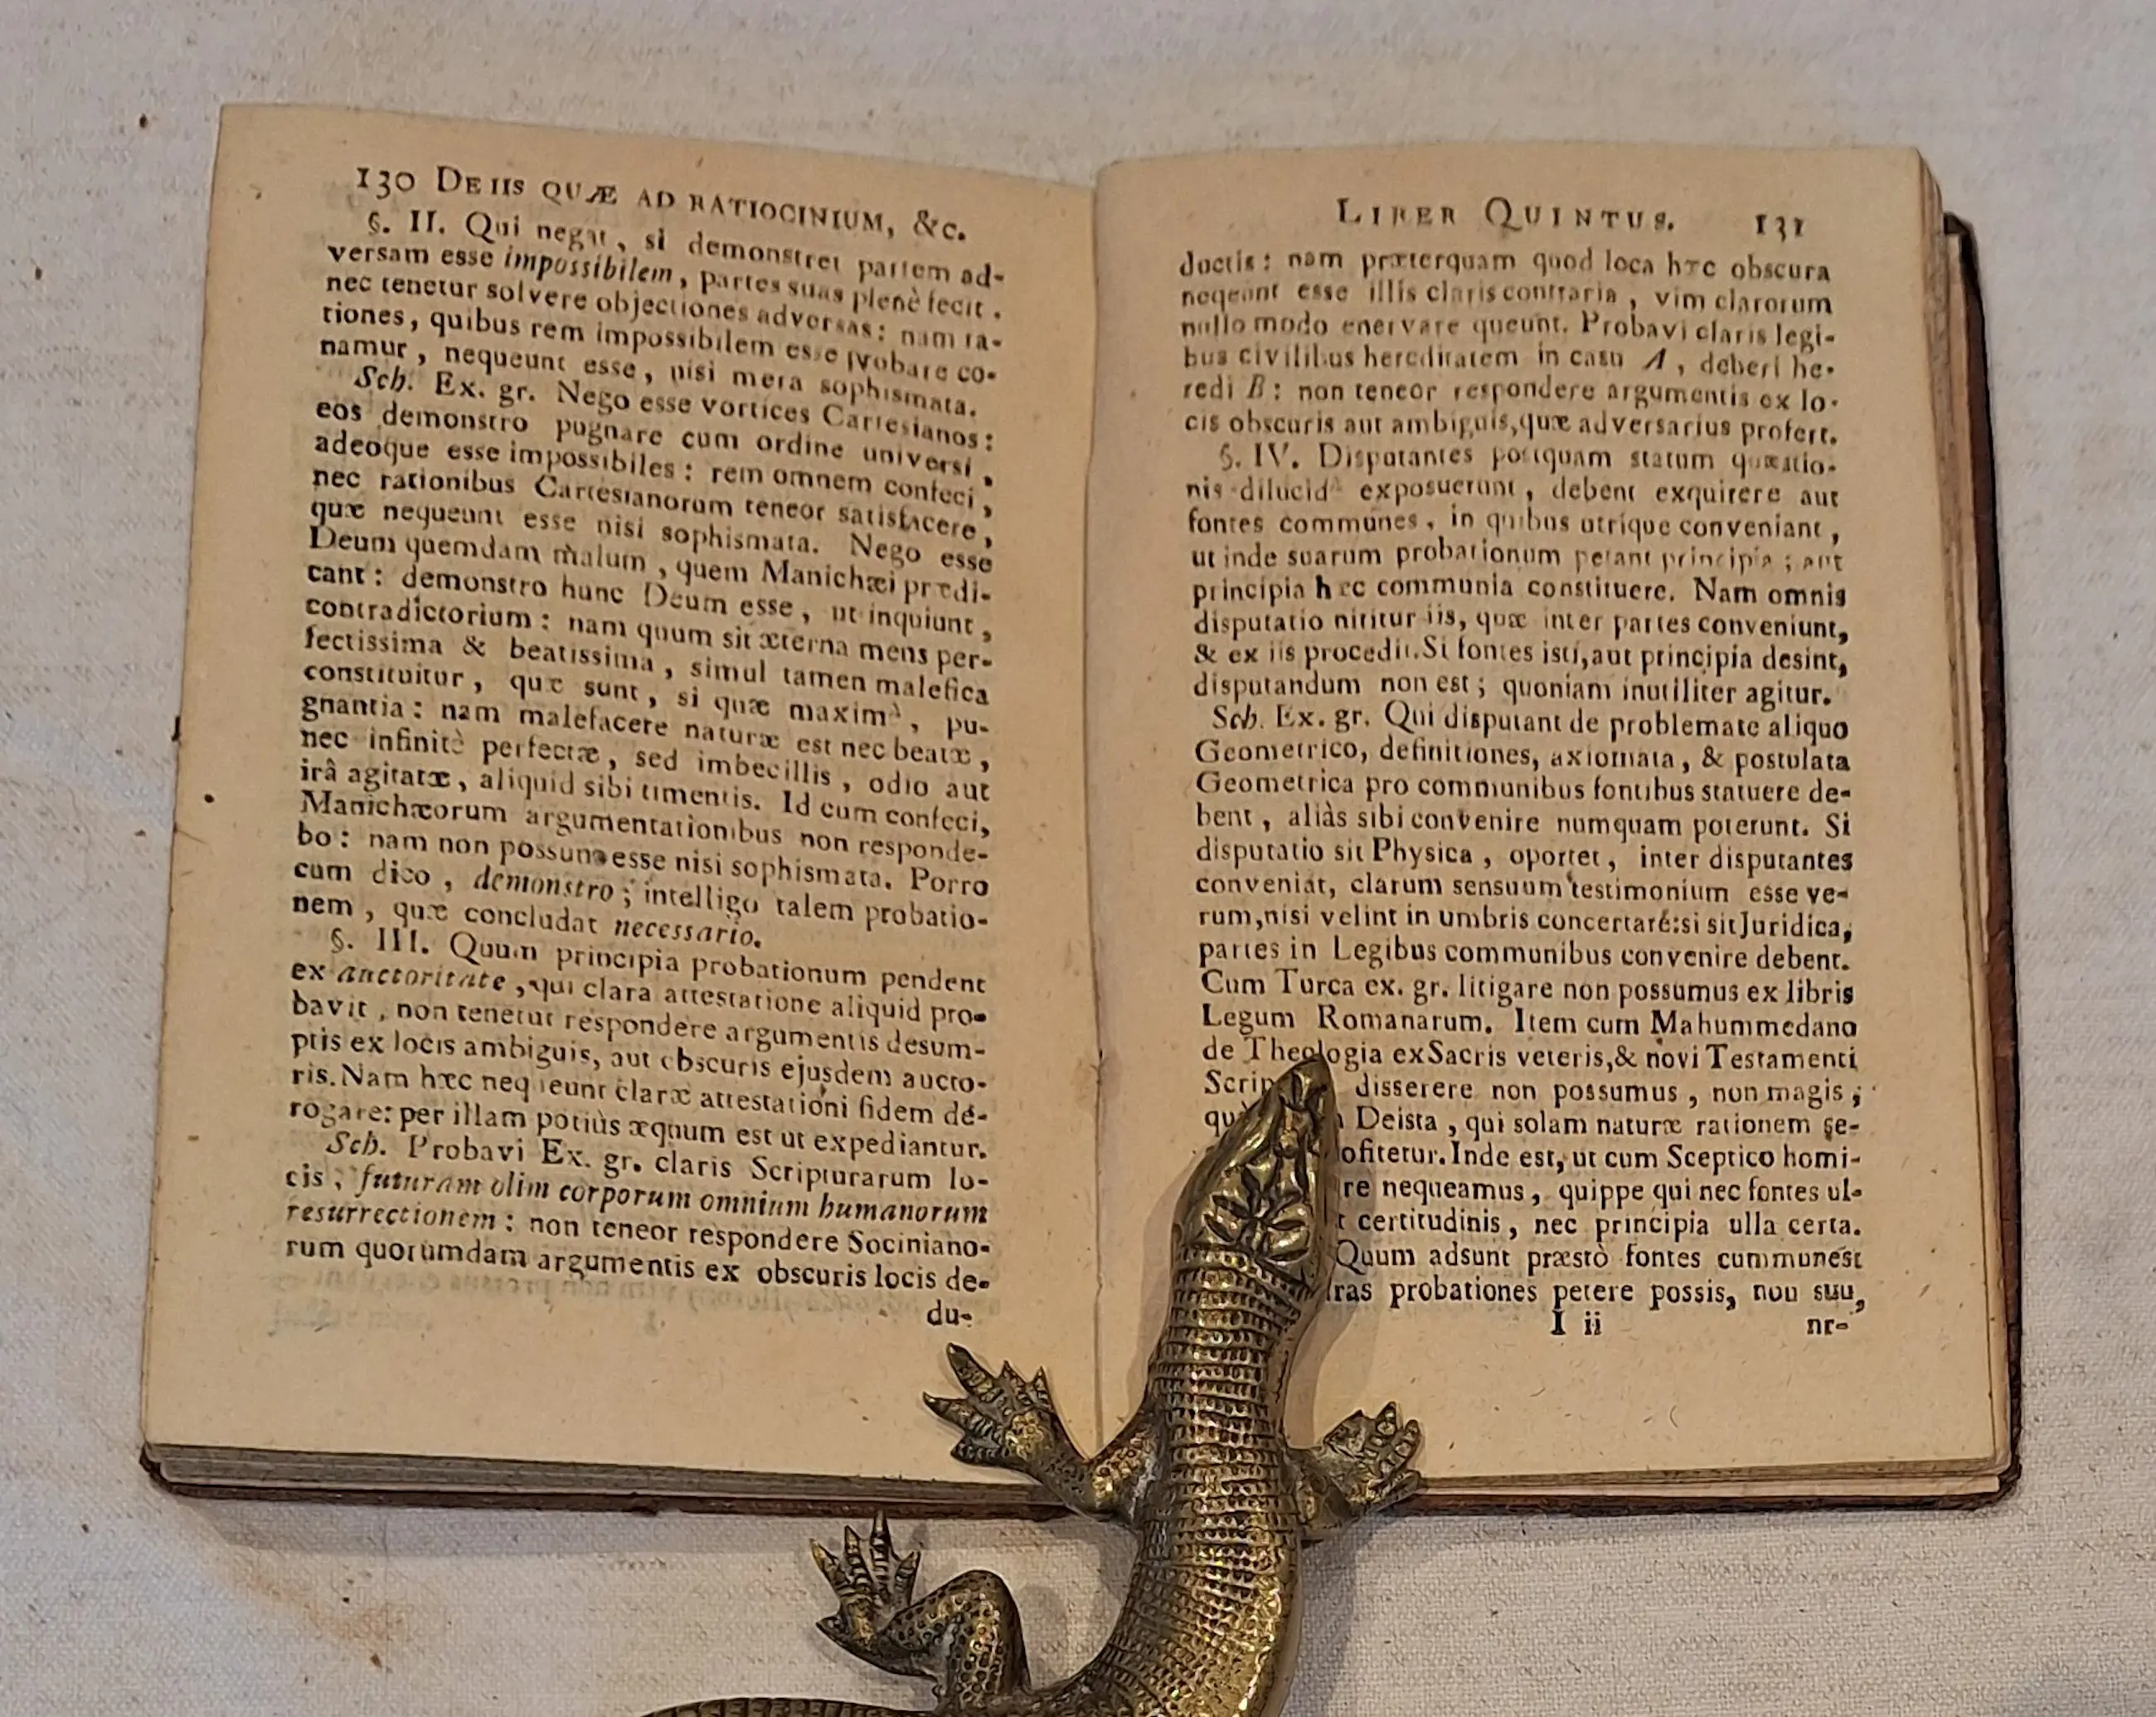 130 DE IIS QUÆ AD RATIOCINIUM, &c.
§. II. Qui negat, si demonstret partem ad-
versam esse impossibilem, partes suas plenè fecit.
nec tenetur solvere objectiones adversas: nam ra-
tiones, quibus rem impossibilem esse probare co-
namur, nequeunt esse, nisi mera sophismata.
Sch. Ex. gr. Nego esse vortices Cartesianos:
eos demonstro pugnare cum ordine universi,
adeoque esse impossibiles: rem omnem confeci,
nec rationibus Cartesianorum teneor satisfacere,
quæ nequeunt esse nisi sophismata. Nego esse
Deum quemdam malum, quem Manichæi prædi-
cant: demonstro hunc Deum esse, ut inquiunt,
contradictorium: nam quum sit æterna mens per-
fectissima & beatissima, simul tamen malefica
constituitur, quæ sunt, si quæ maximè, pu-
gnantia: nam malefacere naturæ est nec beatæ,
nec infinitè perfectæ, sed imbecillis, odio aut
irâ agitatæ, aliquid sibi timentis. Id cum confeci,
Manichæorum argumentationibus non responde-
bo: nam non possunt esse nisi sophismata. Porro
cum dico, demonstro; intelligo talem probatio-
nem, quæ concludat necessario.
§. III. Quum principia probationum pendent
ex auctoritate, qui clara attestatione aliquid pro-
bavit, non tenetur respondere argumentis desum-
ptis ex locis ambiguis, aut obscuris ejusdem aucto-
ris. Nam hæc nequeunt claræ attestationi fidem de-
rogare: per illam potiùs æquum est ut expediantur.
Sch. Probavi Ex. gr. claris Scripturarum lo-
cis, futuram olim corporum omnium humanorum
resurrectionem: non teneor respondere Sociniano-
rum quorumdam argumentis ex obscuris locis de-
du-
LIBER QUINTUS. 131
ductis: nam præterquam quod loca hæc obscura
nequeunt esse illis claris contraria, vim clarorum
nullo modo enervare queunt. Probavi claris legi-
bus civilibus hereditatem in casu A, deberi he-
redi B: non teneor respondere argumentis ex lo-
cis obscuris aut ambiguis, quæ adversarius profert.
§. IV. Disputantes postquam statum quæstio-
nis dilucidè exposuerunt, debent exquirere aut
fontes communes, in quibus utrique conveniant,
ut inde suarum probationum petant principia; aut
principia hæc communia constituere. Nam omnis
disputatio nititur iis, quæ inter partes conveniunt,
& ex iis procedit. Si fontes isti, aut principia desint,
disputandum non est; quoniam inutiliter agitur.
Sch. Ex. gr. Qui disputant de problemate aliquo
Geometrico, definitiones, axiomata, & postulata
Geometrica pro communibus fontibus statuere de-
bent, aliàs sibi convenire numquam poterunt. Si
disputatio sit Physica, oportet, inter disputantes
conveniat, clarum sensuum testimonium esse ve-
rum, nisi velint in umbris concertare: si sit Juridica,
partes in Legibus communibus convenire debent.
Cum Turca ex. gr. litigare non possumus ex libris
Legum Romanarum. Item cum Mahummedano
de Theologia ex Sacris veteris, & novi Testamenti
Scrip disserere non possumus, non magis,
Deista, qui solam naturæ rationem se-
ofitetur. Inde est, ut cum Sceptico homi-
re nequeamus, quippe qui nec fontes ul-
certitudinis, nec principia ulla certa.
Quum adsunt præstò fontes cummunest
probationes petere possis, non suu,
I ii nr-